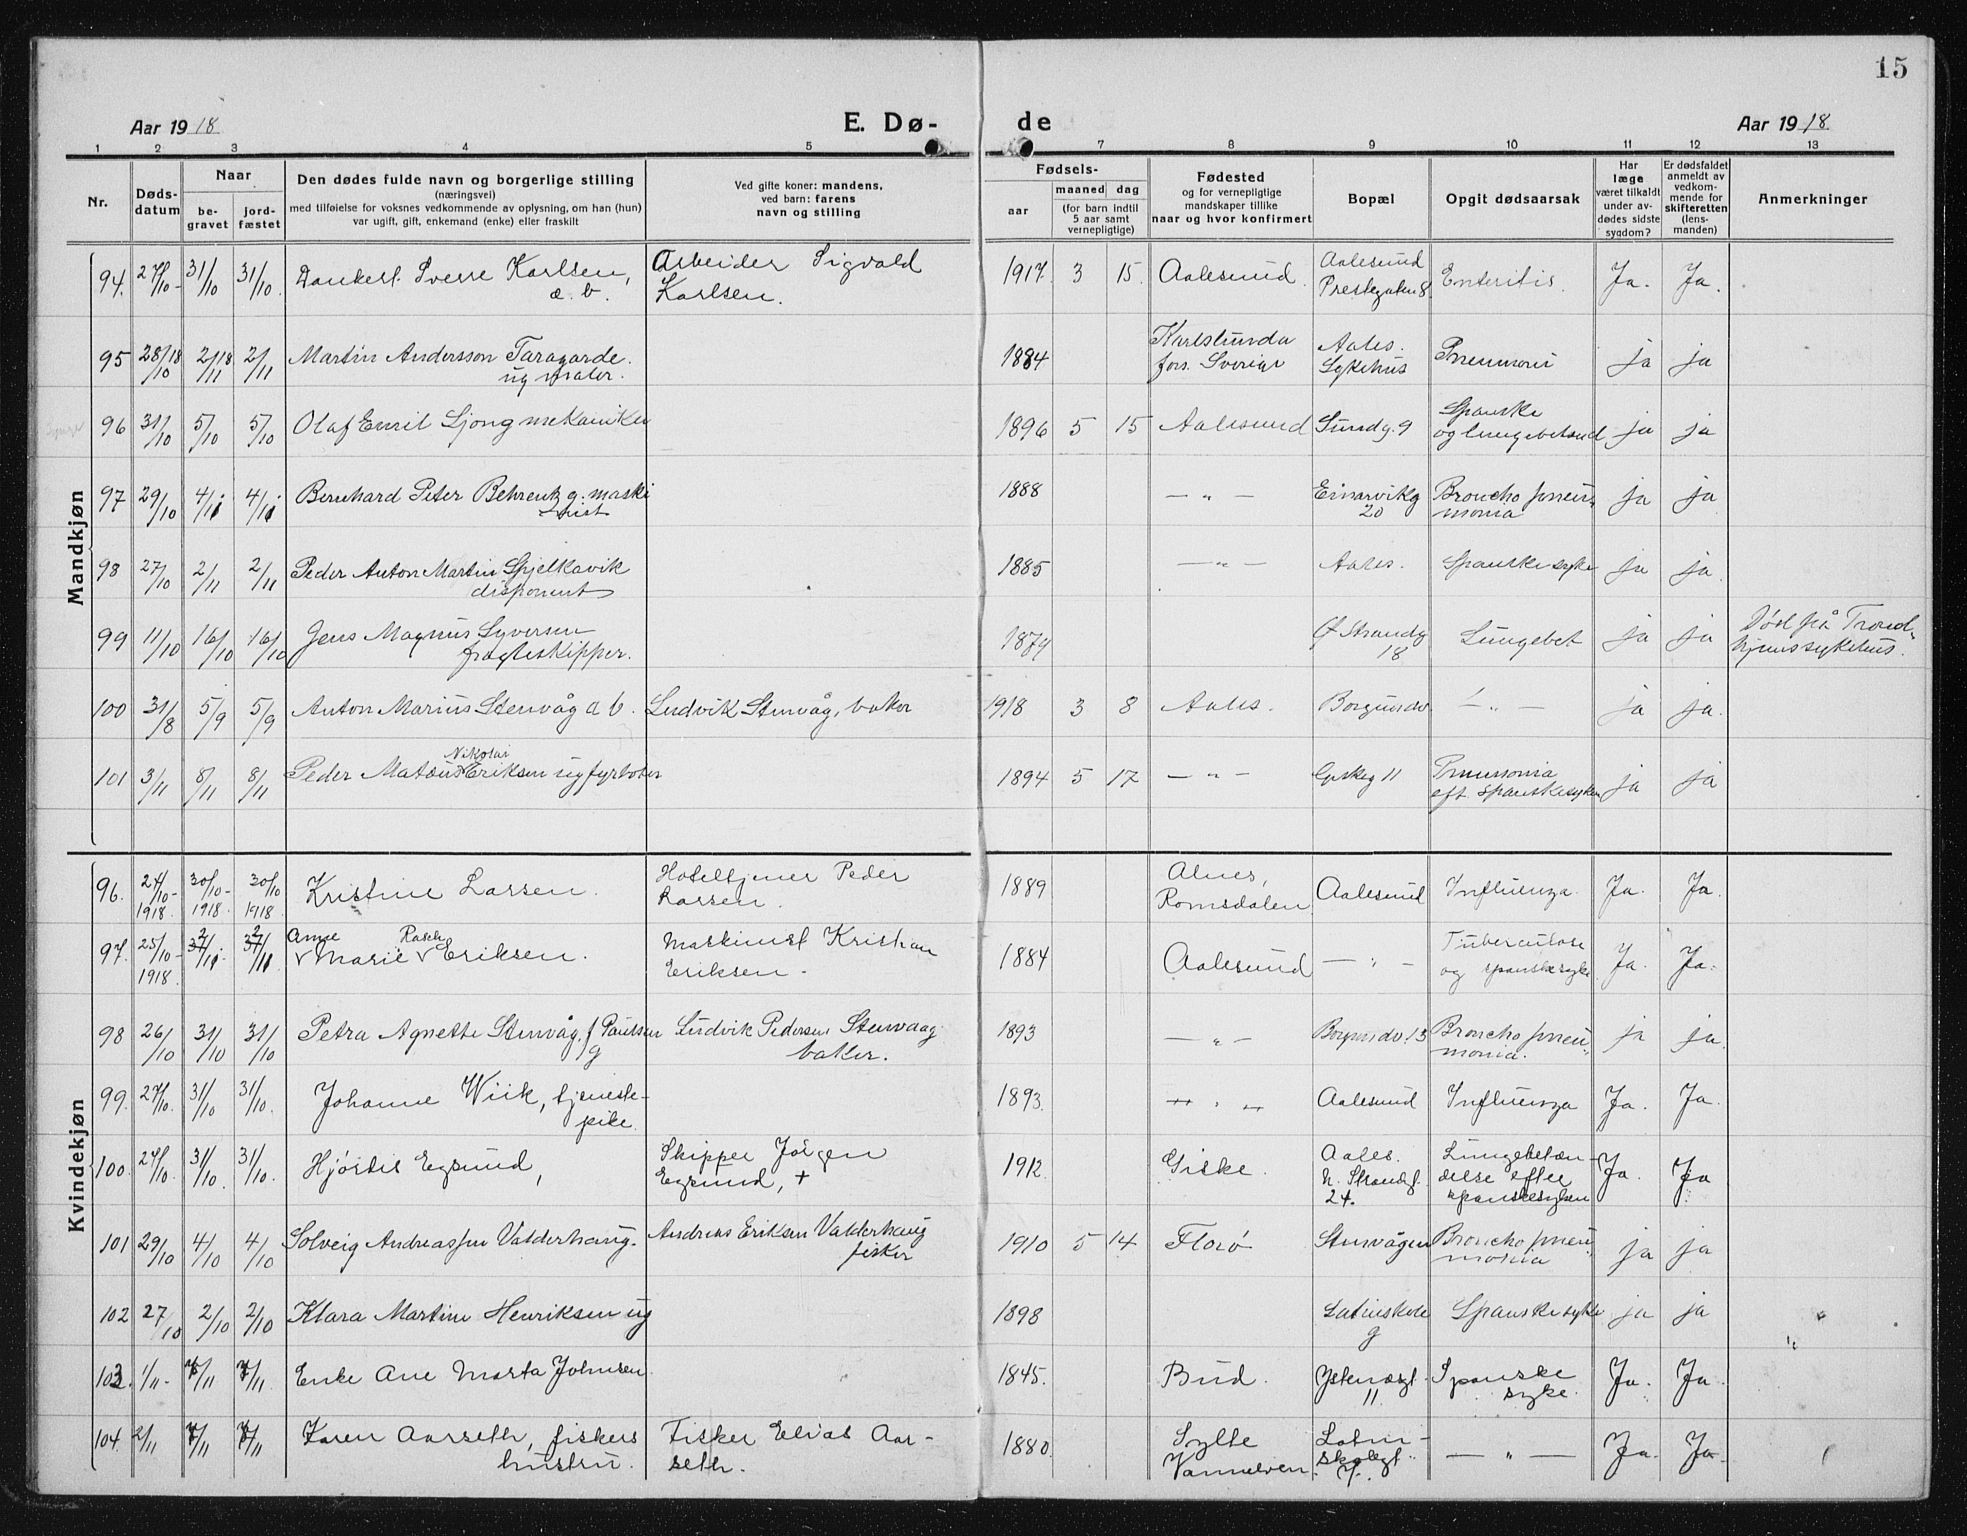 15
Aar 1918 E. Dø- de Aar 1918
1 2 3 4 5 7 8 9 10 11 12 13
Nr.
Døds-
datum
Naar
be-
gravet
jord-
fæstet
Den dødes fulde navn og borgerlige stilling
(næringsvei)
med tilføielse for voksnes vedkommende av oplysning, om han (hun)
var ugift, gift, enkemand (enke) eller fraskilt
Ved gifte koner: mandens,
ved barn: farens
navn og stilling
Fødsels-
aar
maaned dag
(for barn indtil
5 aar samt
vernepligtige)
Fødested
og for vernepligtige
mandskaper tillike
naar og hvor konfirmert
Bopæl
Opgit dødsaarsak
Har
læge
været tilkaldt
under av-
dødes sidste
sygdom?
Er dødsfaldet
anmeldt av
vedkom-
mende for
skifteretten
(lens-
manden)
Anmerkninger
Mandkjøn
94. 27/10 - 31/10 31/10. Dankert Sverre Karlsen, Arbeider Sigvald 1917. 3 15. Aalesund. Aalesund Enteritis. Ja. Ja.
d. b. Karlsen. Prestegaten 8.
95 28/18/10 2/18/11 2/11 Martin Andersson Taragarde. 1884 Karlslunda Aales. Pneumoni ja ja
ug maler. fors. Sverige Sykehus
96 31/10 5/10 5/10 Olaf Emil Ljong mekaniker 1896 5 15 Aalesund Sundg. 9 Spanske ja ja
og lungebetend
97 29/10 4/11 4/11 Bernhard Peter Behrentz g. maski 1888 — " — Einarvikg Broncho pneu- ja ja
nist 20 monia
98 27/10 2/11 2/11 Peder Anton Martin Spjelkavik 1885 — " — Aales. Spanske syke ja ja.
disponent
99 11/10 16/10 16/10 Jens Magnus Syversen 1879 Ø Strandg Lungebet ja ja Død på Trond-
fragteskipper. 18 hjems sykehus.
100 31/8 5/9 5/9 Anton Marius Stenvåg d b. Ludvik Stenvåg, baker 1918 3 8 Aales. Borgundv — " — ja ja.
Nikolai
101 3/11 8/11 8/11 Peder Matæus Eriksen ug fyrbøter 1894 5 17 — " — 11 Pneumonia ja ja
eft. spanskesyken
Kvindekjøn
96. 24/10- 30/10- 30/10 Kristine Larsen. Hoteltjener Peder 1889 Alnes, Aalesund Influenza. Ja. Ja.
1918. 1918. 1918 Larsen. Romsdalen
Anne Rasch
97. 25/10- 2/11- 2/11 Marie Eriksen. Maskinist Kristian 1884 Aalesund — " — Tuberculose Ja. Ja.
1918. Eriksen. og spanskesyke
98 26/10 31/10 31/10 Petra Agnette Stenvåg. f Paulsen Ludvik Pedersen Stenvaag 1893 — " — Borgundv. 13 Broncho pneu- ja ja.
g baker. monia.
99. 27/10. 31/10 31/10. Johanne Wiik, tjeneste- 1893. — " — Aalesund Influenza Ja. Ja.
pike.
100. 27/10. 31/10. 31/10. Hjørdis Egsund, Skipper Jørgen 1912. Giske. Aales. Lungebetæn- Ja. Ja
Egsund, + N. Strandg. delse efter
24. spanskesyken
101 29/10 4/10 4/10 Solveig Andreassen Valderhaug. Andreas Eriksen Valderhaug 1910 5 14 Florø Stenvågen Broncho pneu- ja ja
fisker monia
102 27/10 2/10 2/10 Klara Martine Henriksen ug 1898 Latinskole Spanske syke ja ja
g
103. 1/11- 7/11 7/11. Enke Ane Marta Johnsen. 1845. Bud. Spanske Ja. Ja.
11. syke.
104. 2/11 7/11 7/11 Karen Aarseth, fiskers Fisker Elias Aar- 1880. Sylte Latin- — " — Ja. Ja.
hustru. seth. Vannelven. skolegt.
7.